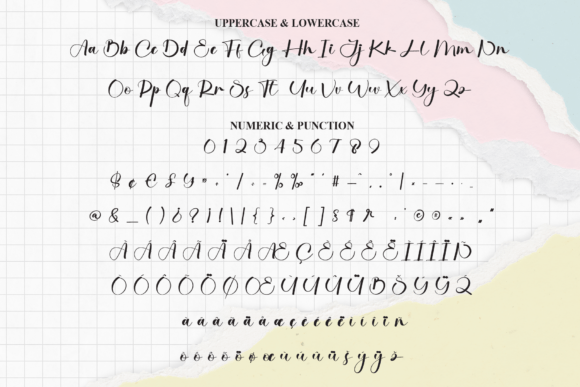 UPPERCASE & LOWERCASE
Aa Bb Cc Dd Ee Ff Gg Hh Ii Jj Kk Ll Mm Nn
Oo Pp Qq Rr Ss Tt Uu Vv Ww Xx Yy Zz
NUMERIC & PUNCTION
0 1 2 3 4 5 6 7 8 9
$ ¢ € £ ¥ / % ‰ # — |
@ & _ ( ) ¿ ? ¡ ! \ | { } . . [ ] § ¶ © ®
À Á Â Ã Ä Å Æ Ç È É Ê Ë Ì Í Î Ï Ñ
Ò Ó Ô Õ Ö Ø Œ Ù Ú Û Ü Š Ý Ÿ Ž
à á â ã ä å æ ç è é ê ë ì í î ï ñ
ò ó ô õ ö ø œ ù ú û ü š ý ÿ ž